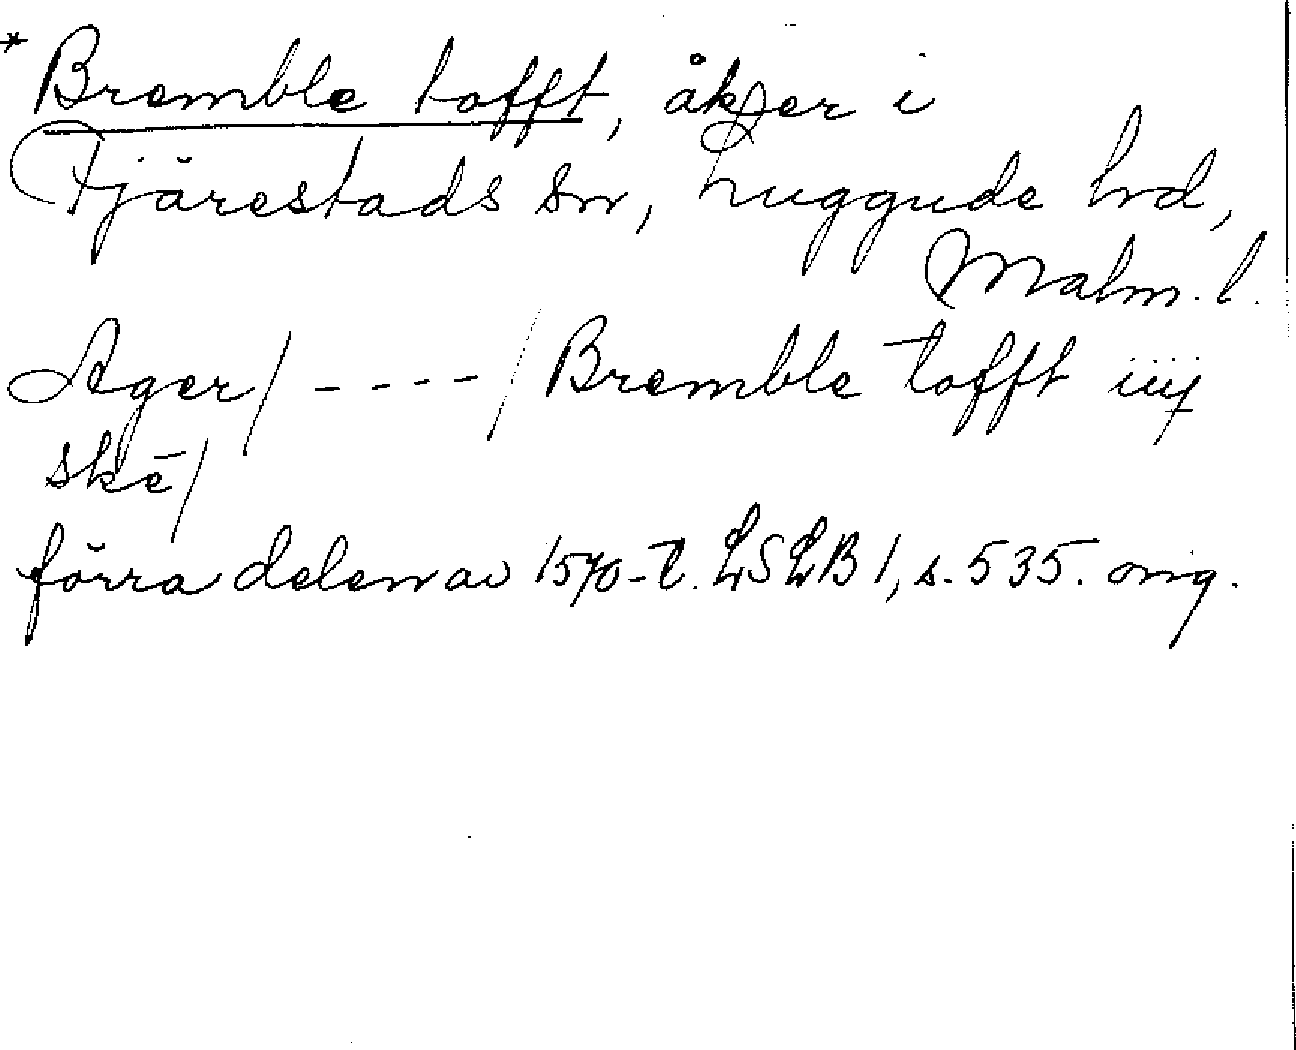 * Bremble tofft, åker i
Fjärestads sn, Luggude hd,
Malm. l.
Ager/ - - - - / Bremble tofft iiij
skē/
förra delen av 1570-t. LSLB 1, s. 535. orig.